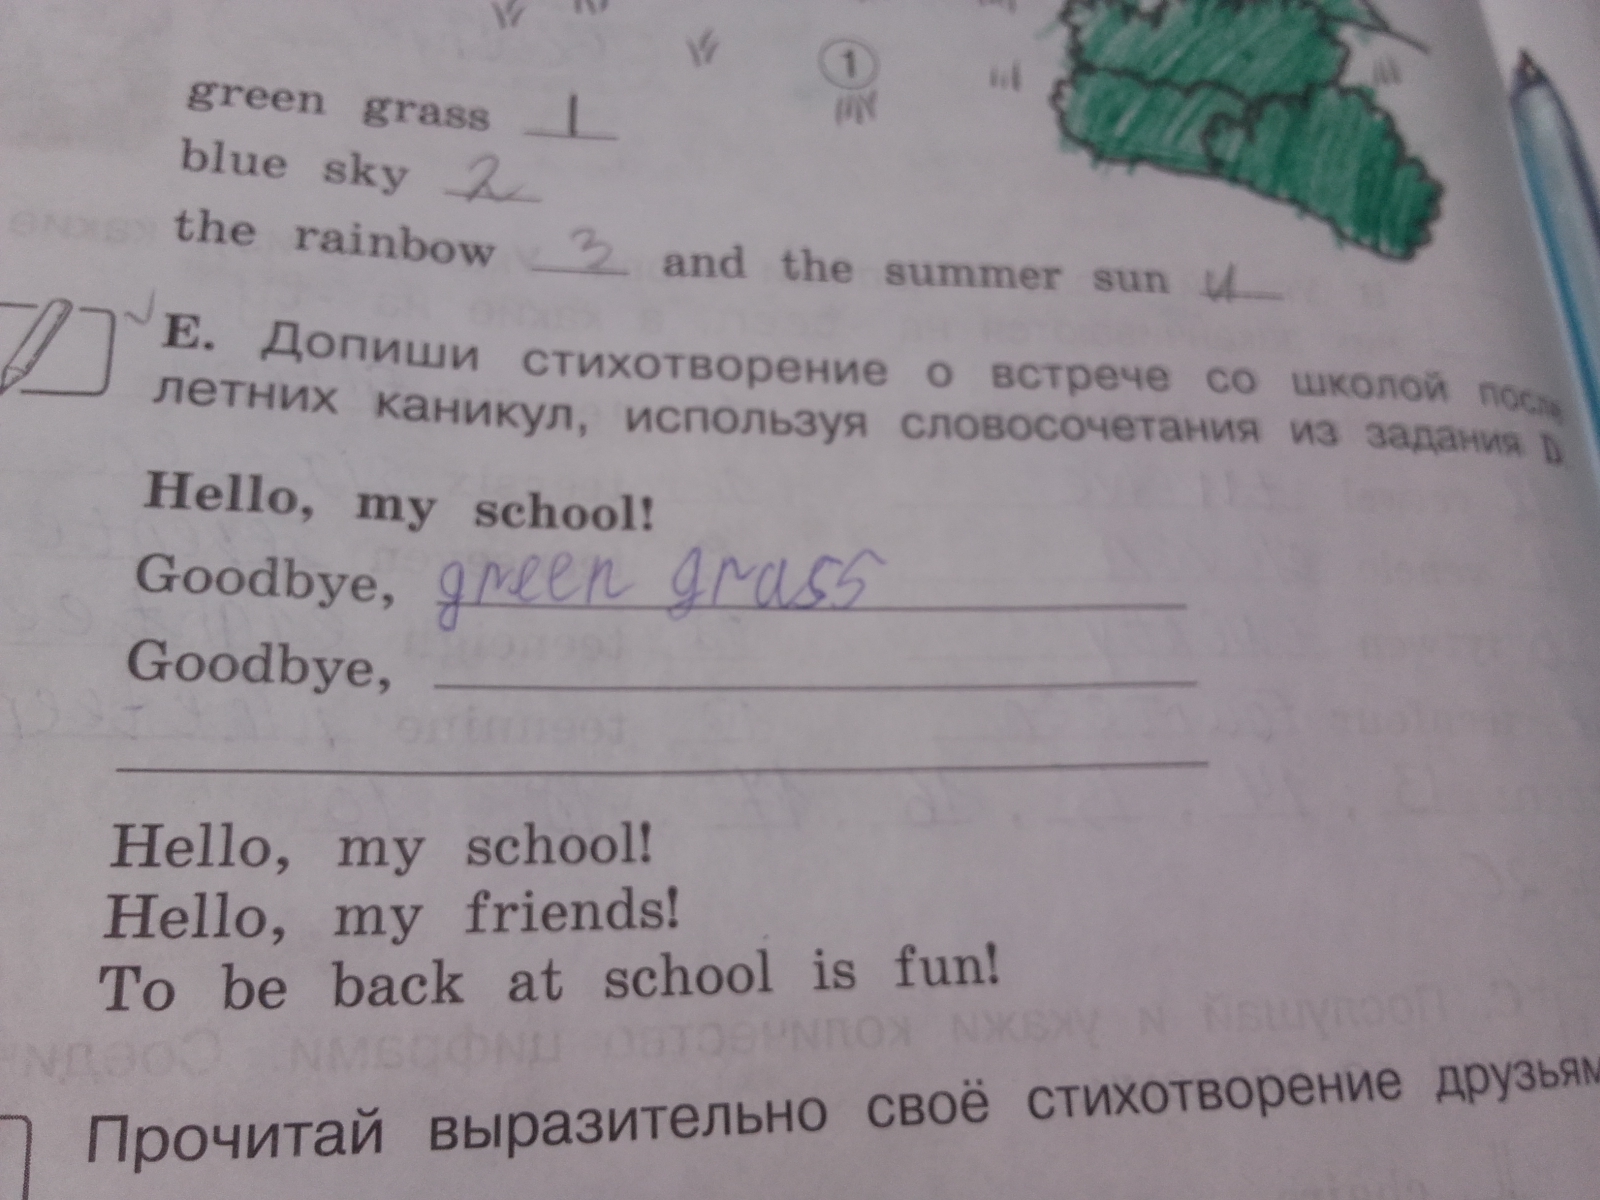 1
green grass 1
blue sky 2
the rainbow 3 and the summer sun 4
E. Допиши стихотворение о встрече со школой после
летних каникул, используя словосочетания из задания D.
Hello, my school!
Goodbye, green grass
Goodbye,
Hello, my school!
Hello, my friends!
To be back at school is fun!
Прочитай выразительно своё стихотворение друзьям